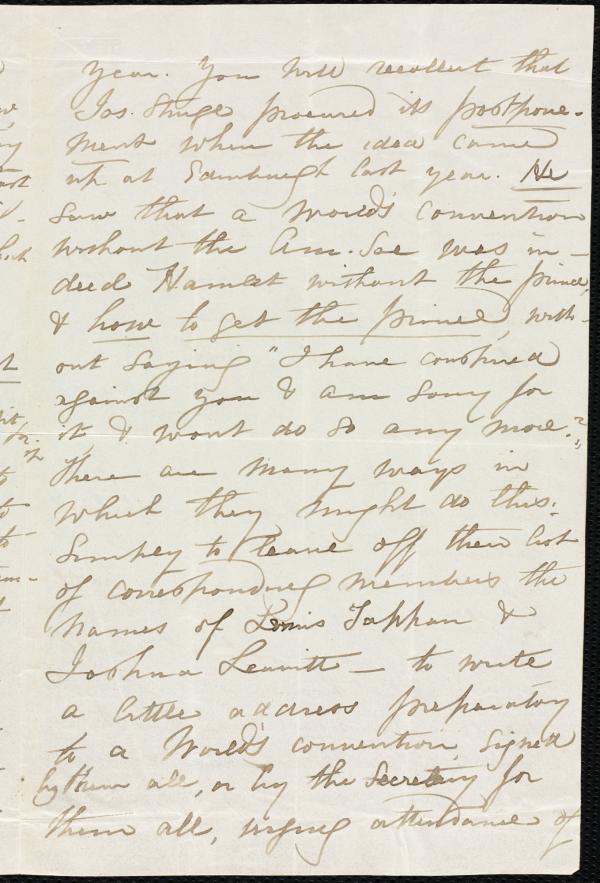 year. You will recollect that
Jos. Sturge procured its postpone-
ment when the idea came
up at Edinburgh last year. He
saw that a World's convention
without the Am. Soc was in-
deed Hamlet without the prince,
& how to get the prince, with-
out saying "I have conspired
against you & am sorry for
it & wont do so any more?"
There are many ways in
which they might do this:
Simply to leave off their list
of corresponding members the
names of Lewis Tappan &
Joshua Leavitt — to write
a little address preparatory
to a World's convention, signed
by them all, or by the Secretary for
them all, urging attendance of